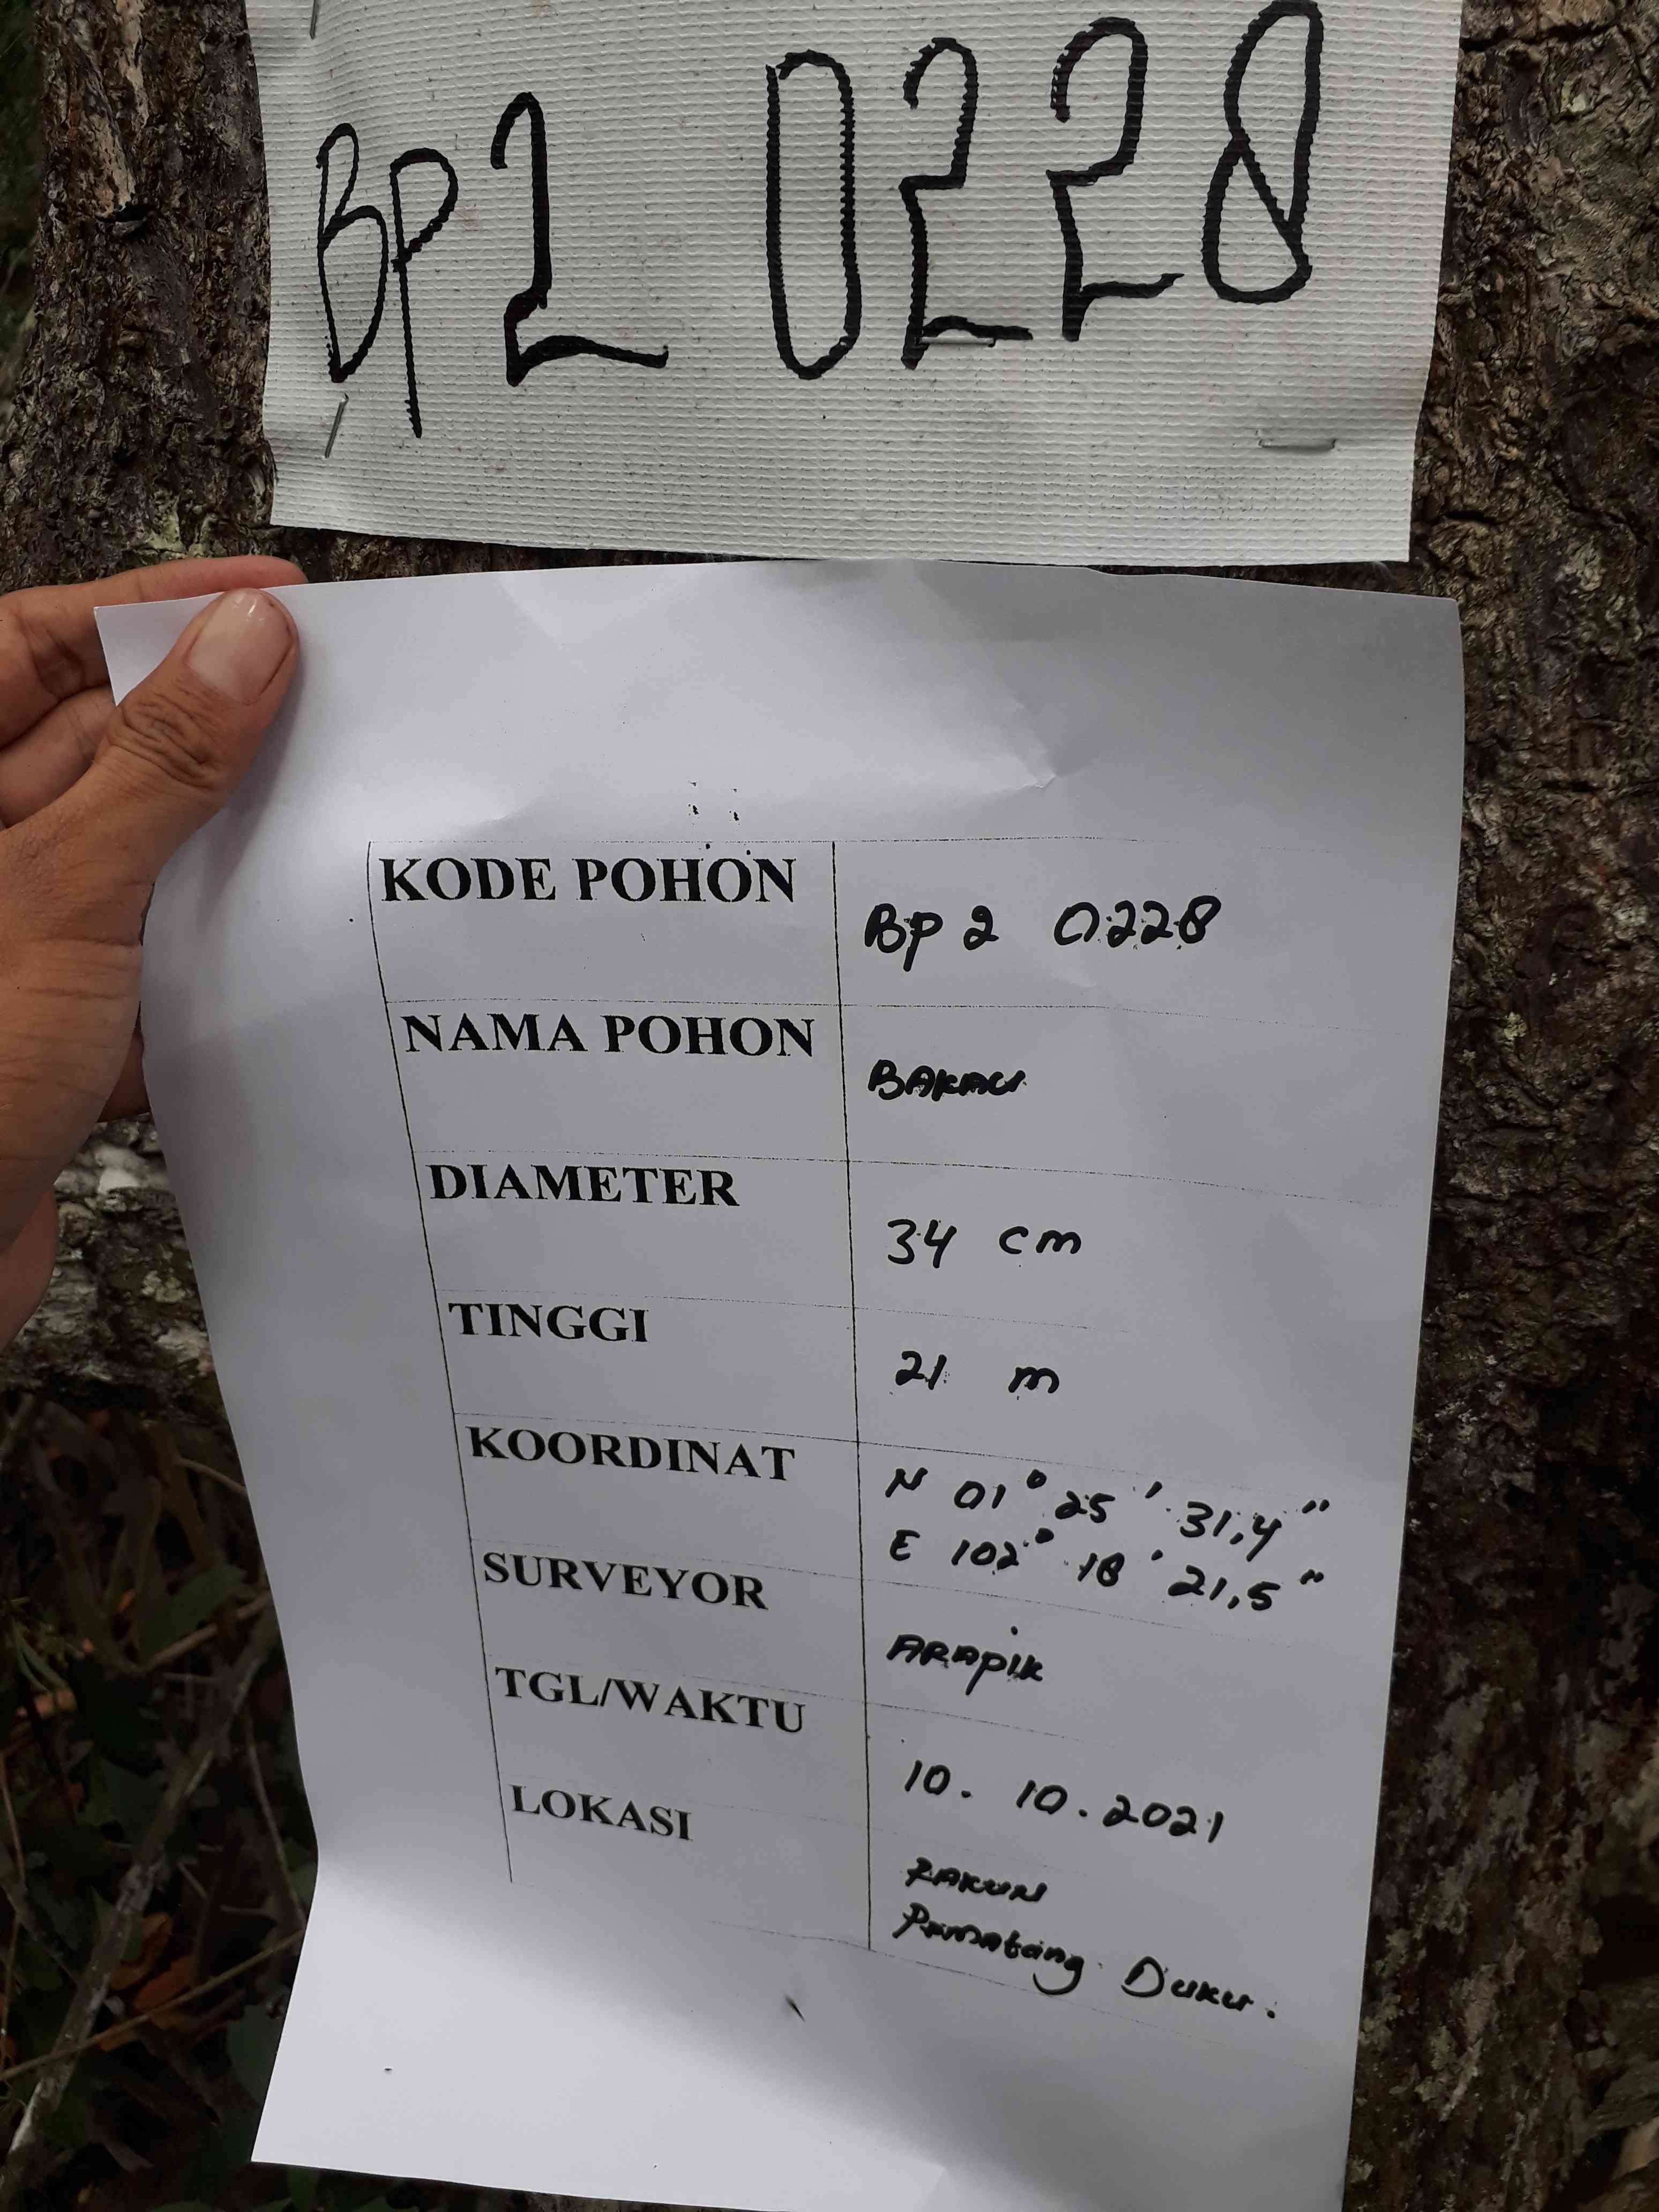 BP2 0228
KODE POHON
BP 2 0228
NAMA POHON
BAKAU
DIAMETER
34 cm
TINGGI
21 m
KOORDINAT
N 01° 25' 31,4"
E 102° 18' 21,5"
SURVEYOR
ARAPIK
TGL/WAKTU
10. 10. 2021
LOKASI
Pamatang Duku.